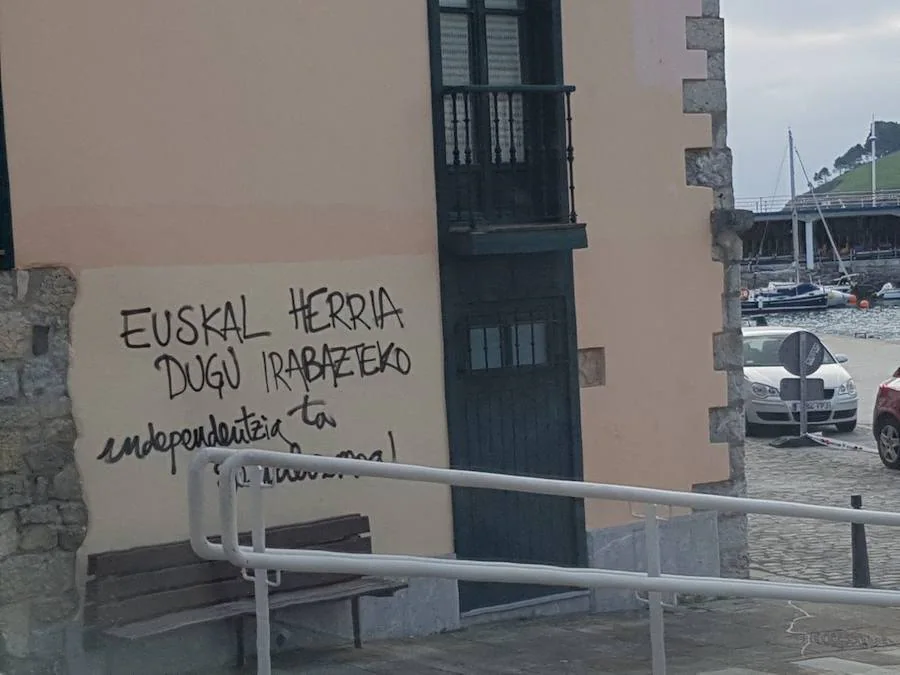 EUSKAL HERRIA
DUGU IRABAZTEKO
independentzia ta